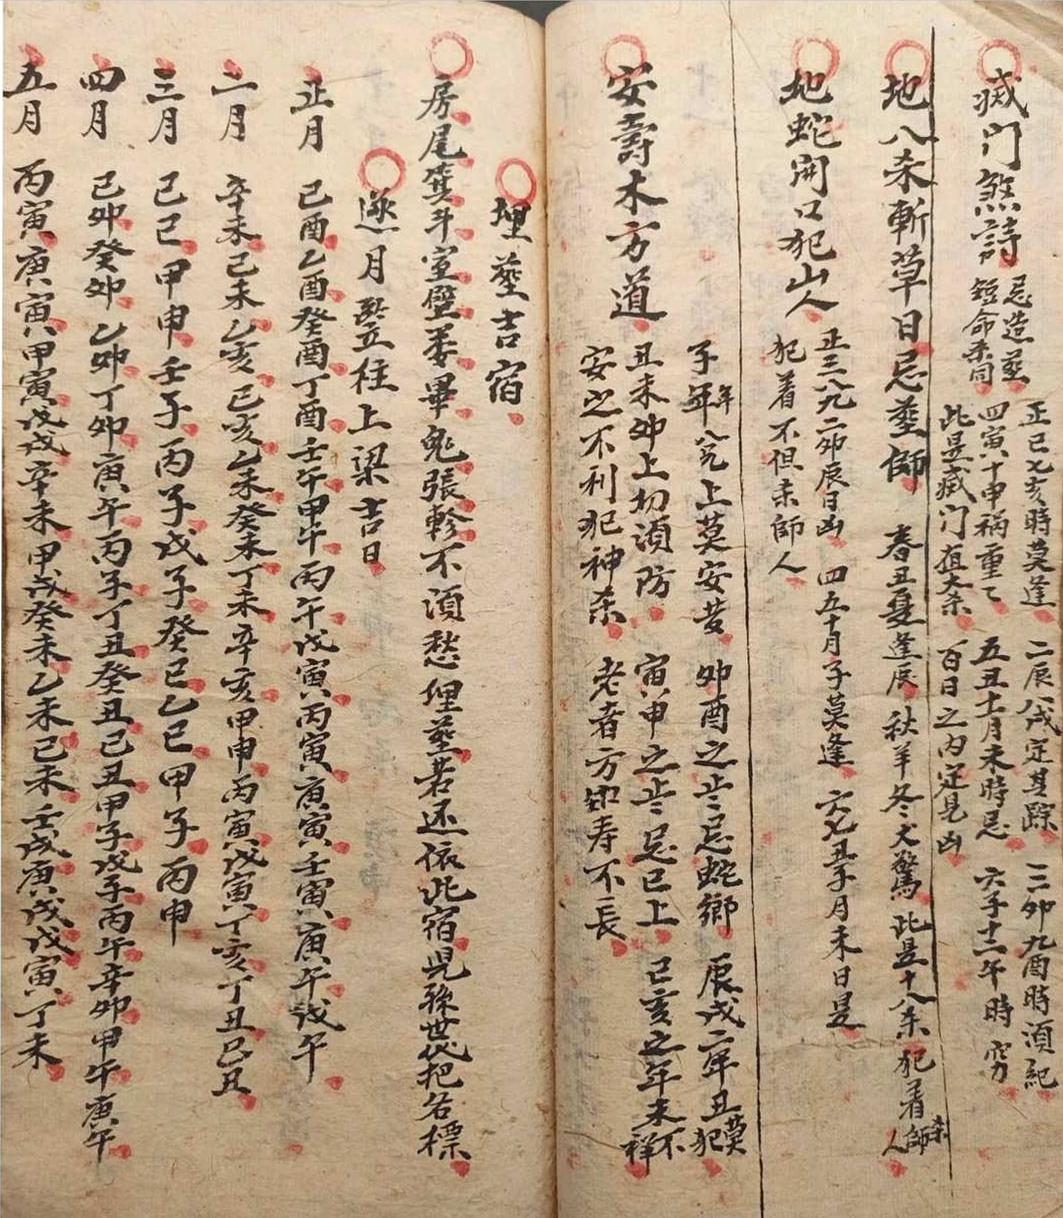 滅门煞詩
忌造葬
短命杀同
正巳七亥時莫逢 二辰八戌定其踪 三卯九酉時須紀
四寅十申祸重重 五丑十一月未時忌 六子十二午時穷
此是滅门狙大杀 百日之内定見凶
地八杀斬草日忌葬師 春丑夏逢辰 秋羊冬犬驚 此是十八杀 犯着杀師人
地蛇開口犯山人 正三八九二卯辰日凶 四五十月子莫逢 六七丑子月未日是
犯着不但杀師人
安壽木方道
子午年 上莫安 卯酉之年忌蛇鄉 辰戌二年丑莫犯
丑未卯上切須防 寅申之年忌巳上 巳亥之年未不祥
安之不利犯神杀 老者方知寿不長
埋葬吉宿
房尾箕斗室壁婁畢鬼張軫不須愁埋葬若还依此宿児孫世代把名標
逐月竪柱上梁吉日
正月 己酉乙酉癸酉丁酉壬午甲午丙午戊寅丙寅庚寅壬寅庚午戊午
二月 辛未己未乙亥己亥乙未癸未丁未辛亥甲申丙寅戊寅丁亥丁丑己丑
三月 己巳甲申壬子丙子戊子癸巳乙巳甲子丙申
四月 己卯癸卯乙卯丁卯庚午丙子丁丑癸丑己丑甲子戊子丙午辛卯甲午庚午
五月 丙寅庚寅甲寅戊戌辛未甲戌癸未乙未己未壬戌庚戌戊寅丁未